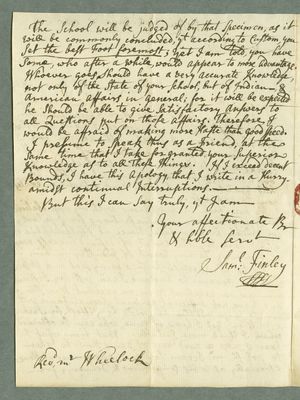 The School will be judged of by that Specimen, as it
will be commonly concluded yt according to Custom you
set the best Foot foremost; & yet I am told, you have
Some, who after a while would appear to more Advantage.
Whoever goes should have a very accurate Knowledge
not only of the State of your School, but of Indian &
American affairs in general; for it will be expected
he should be able to give Satisfactory Answers to
all Questions put on those affairs. Therefore, I
would be afraid of making more Haste than good Speed.
I presume to Speak thus as a Friend, at the
Same time that I take for granted your Superior
Knowledge as to all these Things. If I exceed decent
Bounds, I have this Apology, that I write in a Hurry
amidst continual Interruptions.
But this I can Say truly, yt I am
Your affectionate Br
& hble Servt
Saml. Finley
Revd. mr Wheelock